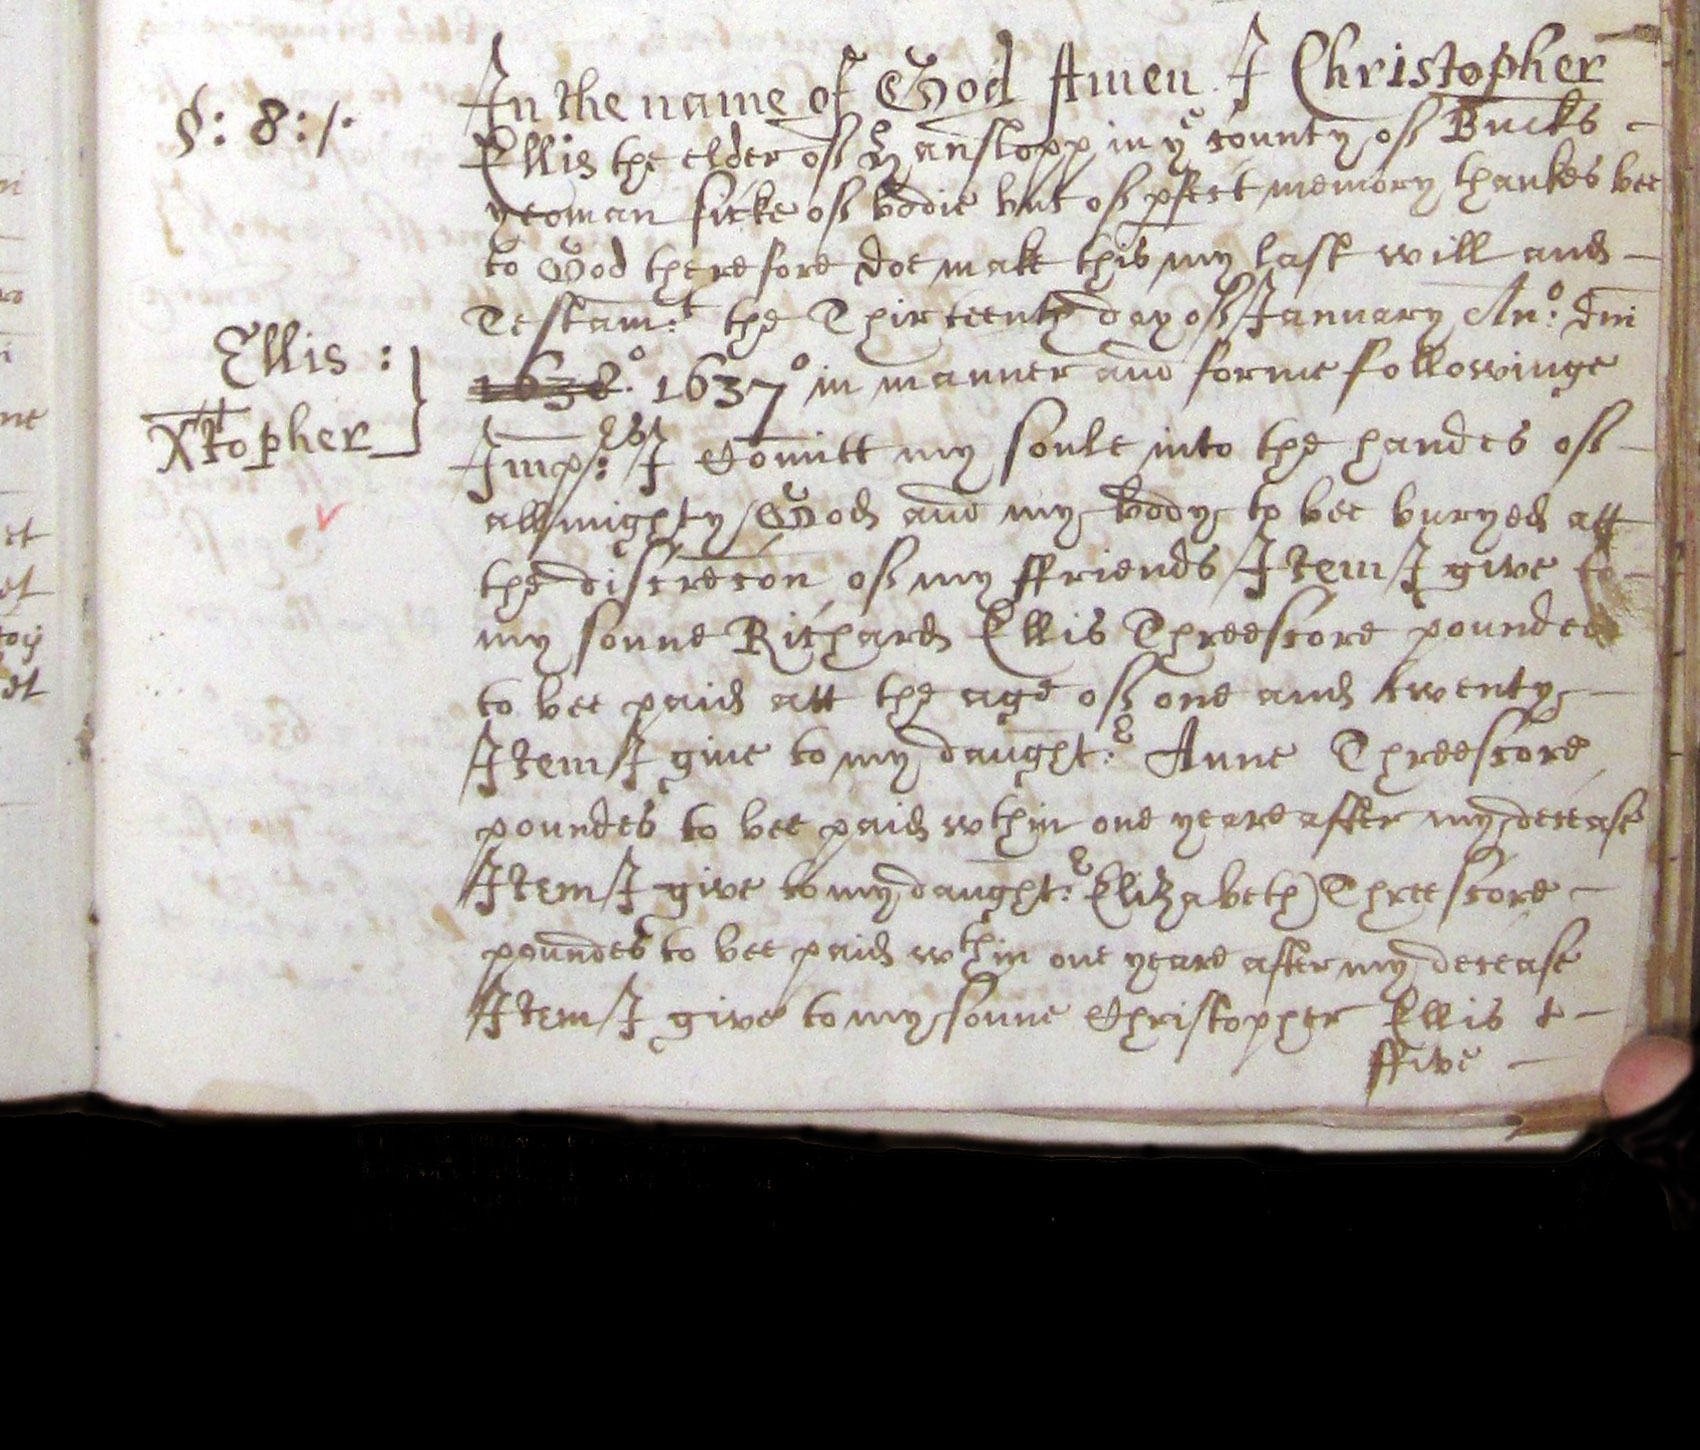 §: 8: /.
In the name of God Amen. I Christopher
Ellis the elder of Hanslopp in yᵉ county of Bucks -
yeoman sicke of bodie but of pfect memory thankes bee
to God therefore doe make this my last will and -
Testam:ᵗ the Thirteenth day of January An:º dm̄
1638º. 1637º in manner and forme followinge
Ellis :
Xtopher
Imp:ʳˢ I Com̄itt my soule into the handes of -
allmighty God and my body to bee buryed att
the discrec̄on of my ffriends Item I give to -
my sonne Richard Ellis Threescore poundes
to bee paid att the age of one and twenty -
Item I give to my daught:ʳ Anne Threescore
poundes to bee paid wᵗʰin one yeare after my decease
Item I give to my daught:ʳ Elizabeth Threescore -
poundes to bee paid wᵗʰin one yeare after my decease
Item I give to my sonne Christopher Ellis -
ffive -